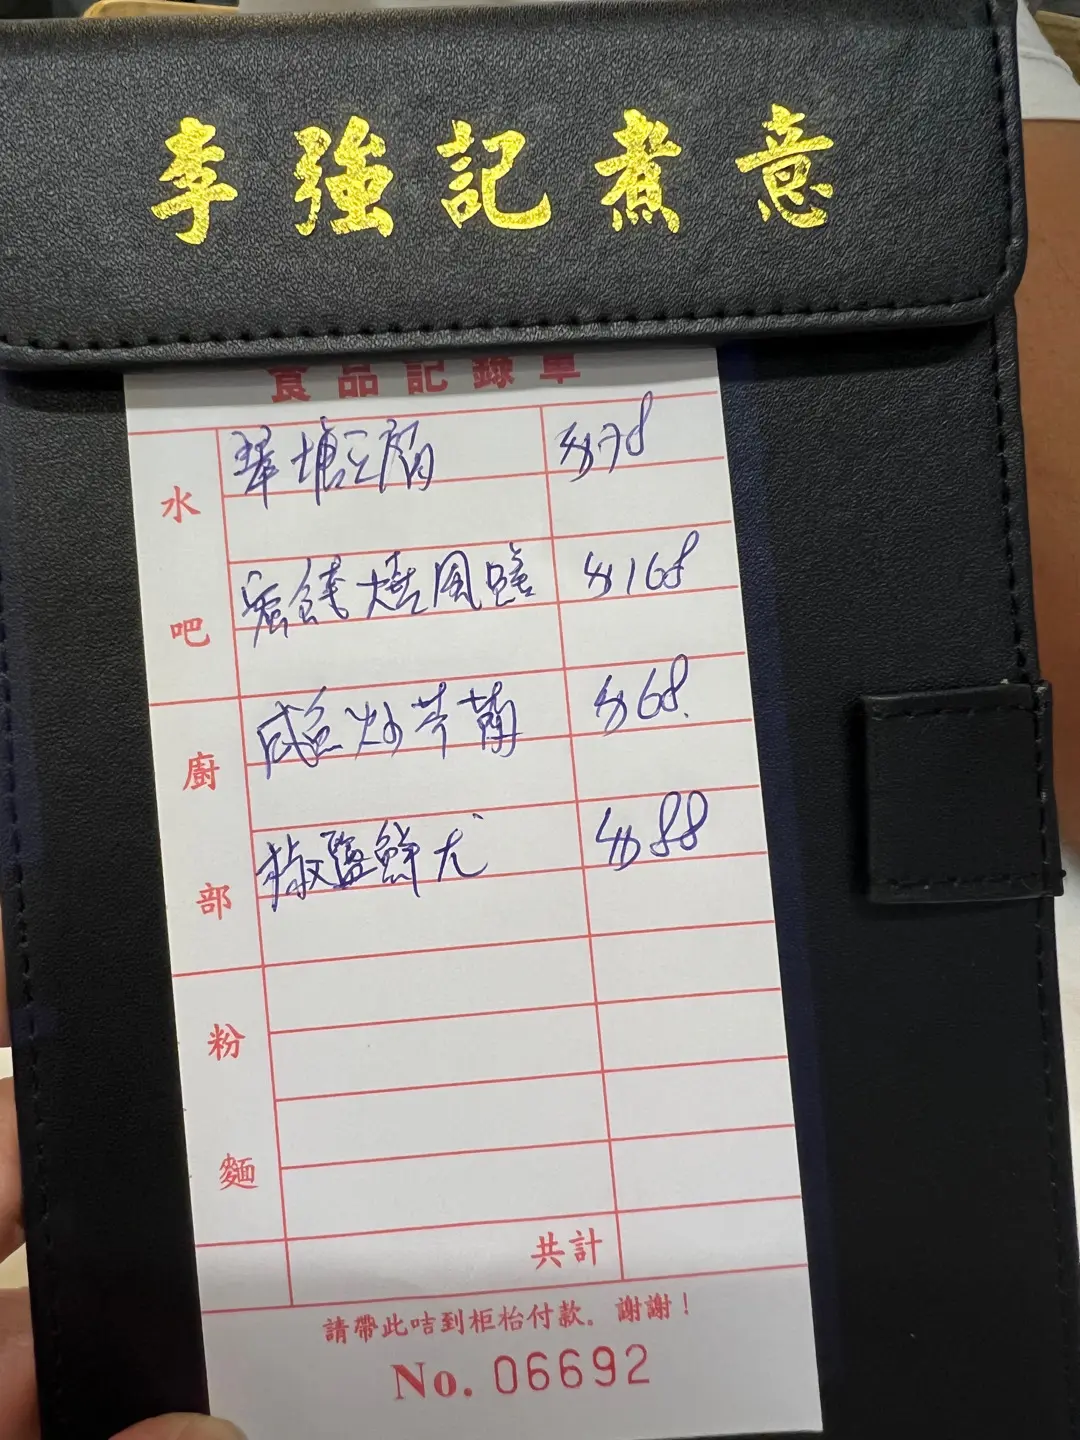 李強記煮意
食品記錄單
水吧
琵琶豆腐 $78
蜜餞燒風鱔 $168
咸魚炒芥蘭 $68.
廚部
椒鹽鮮尤 $88
粉麵
共計
請帶此咭到柜枱付款。謝謝！
No. 06692